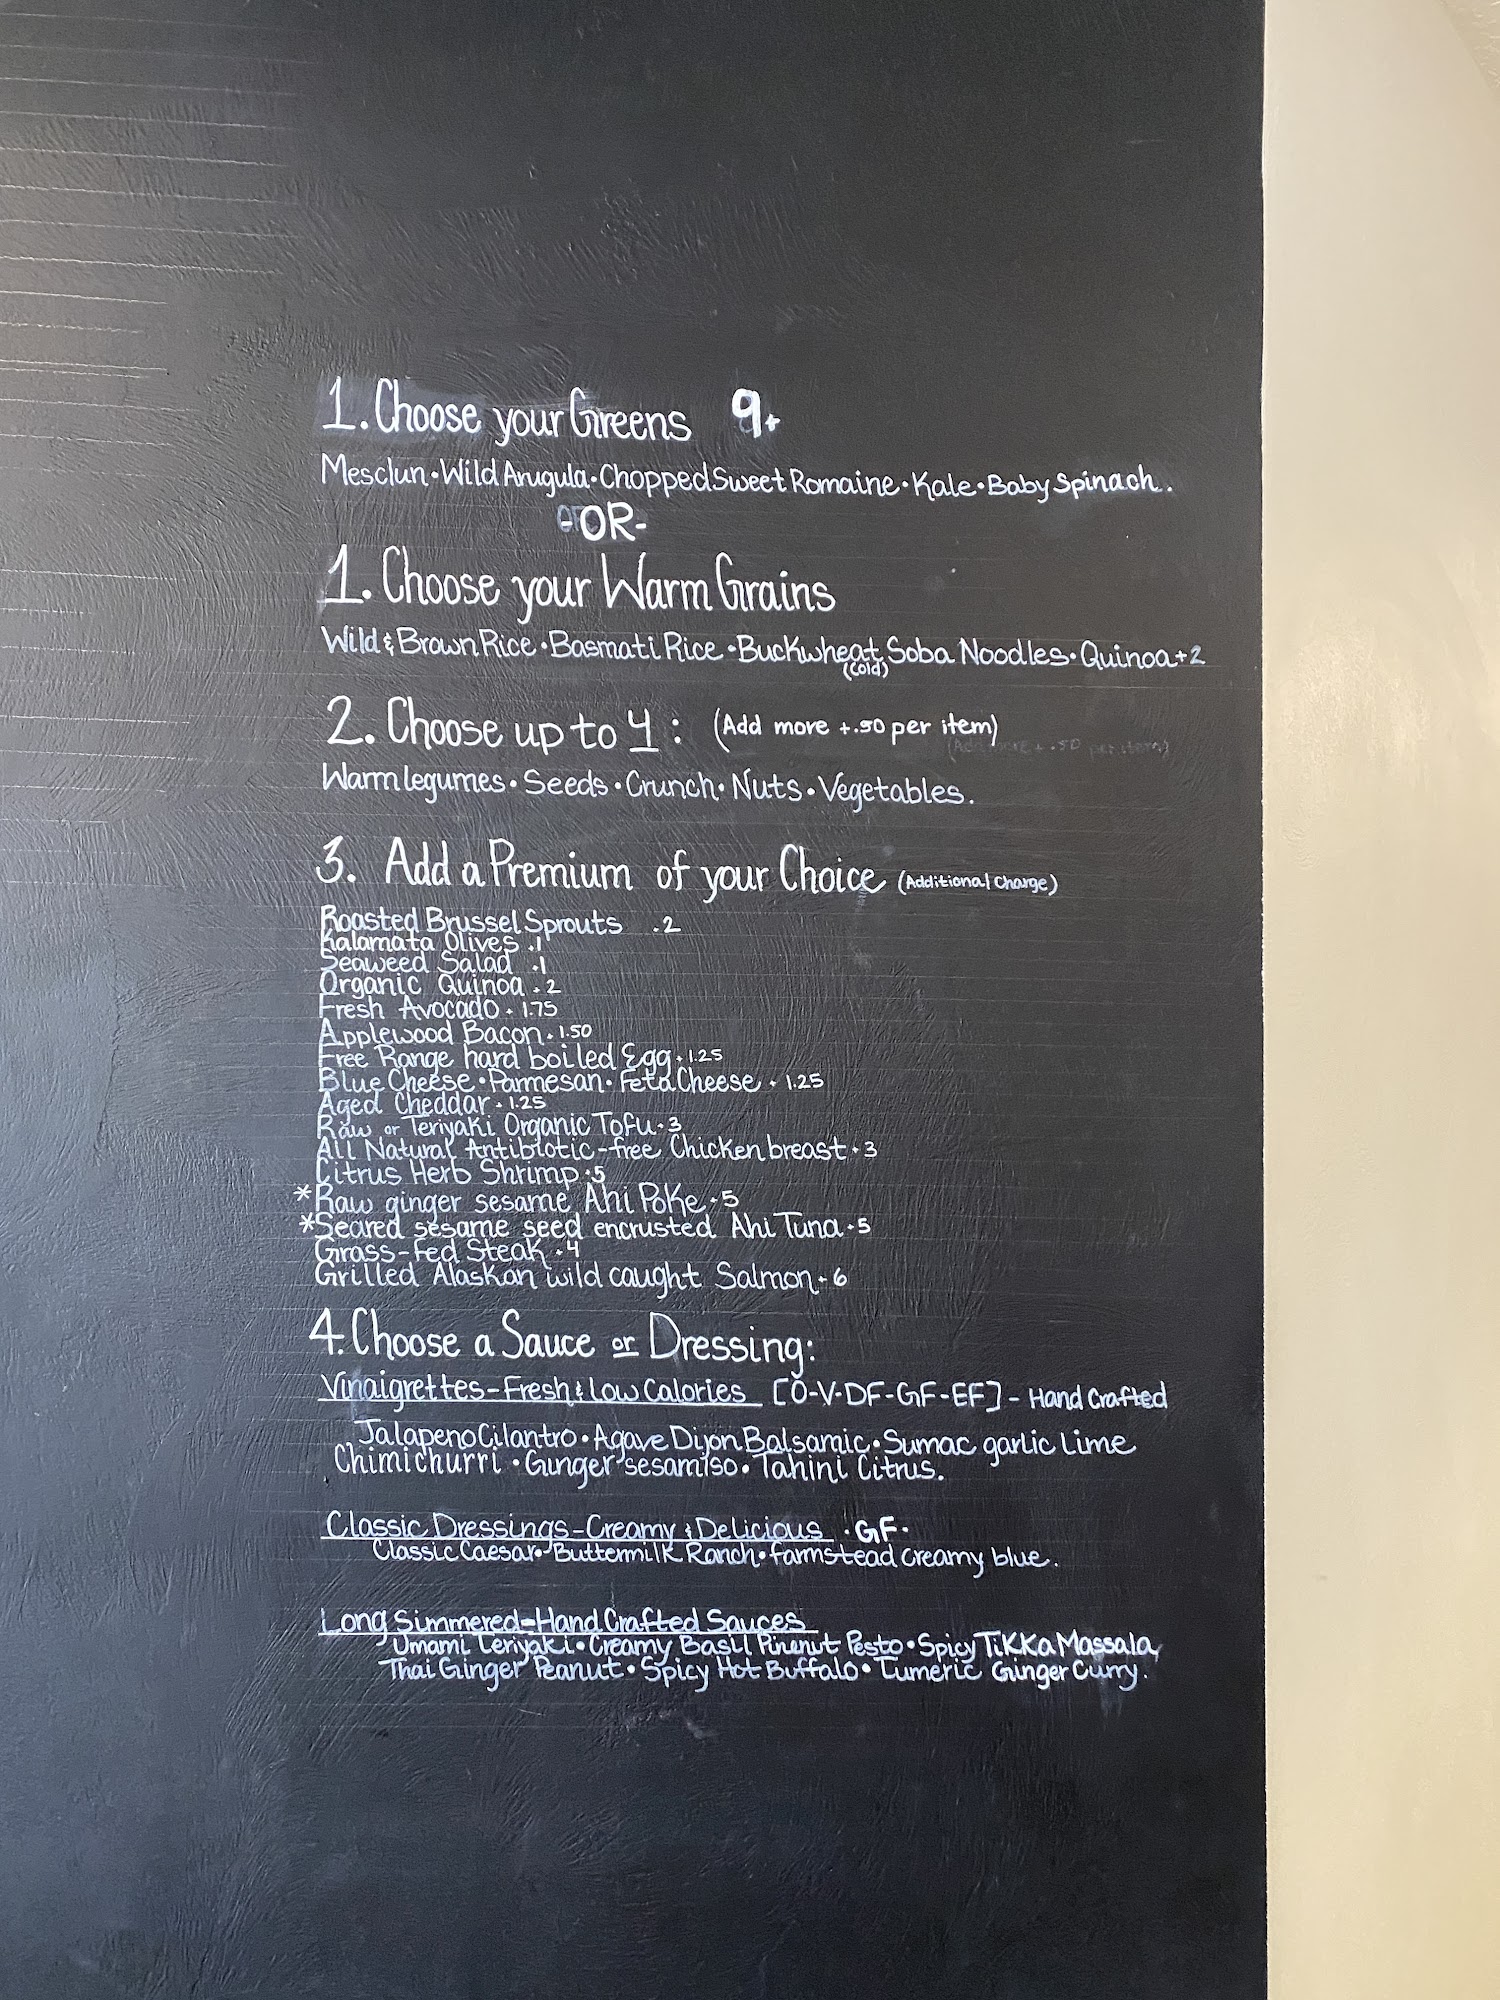 1. Choose your Greens 9+
Mesclun • Wild Arugula • Chopped Sweet Romaine • Kale • Baby Spinach.
-OR-
1. Choose your Warm Grains
Wild & Brown Rice • Basmati Rice • Buckwheat Soba Noodles • Quinoa +2
(Cold)
2. Choose up to 4 : (Add more +.50 per item)
(Add more + .50 per item)
Warm legumes • Seeds • Crunch • Nuts • Vegetables.
3. Add a Premium of your Choice (Additional Charge)
Roasted Brussel Sprouts .2
Kalamata Olives .1
Seaweed Salad .1
Organic Quinoa . 2
Fresh Avocado . 1.75
Applewood Bacon . 1.50
Free Range hard boiled Egg . 1.25
Blue Cheese • Parmesan • Feta Cheese . 1.25
Aged Cheddar . 1.25
Raw or Teriyaki Organic Tofu . 3
All Natural Antibiotic-free Chicken breast . 3
Citrus Herb Shrimp . 5
*Raw ginger sesame Ahi Poke . 5
*Seared sesame seed encrusted Ahi Tuna . 5
Grass-Fed Steak . 4
Grilled Alaskan wild caught Salmon . 6
4. Choose a Sauce or Dressing:
Vinaigrettes-Fresh & Low Calories [O-V-DF-GF-EF] - Hand Crafted
Jalapeno Cilantro • Agave Dijon Balsamic • Sumac garlic lime
Chimichurri • Ginger sesamiso • Tahini Citrus.
Classic Dressings-Creamy & Delicious • GF •
Classic Caesar • Buttermilk Ranch • farmstead creamy blue.
Long Simmered-Hand Crafted Sauces
Umami Teriyaki • Creamy Basil Pinenut Pesto • Spicy TiKKa Massala,
Thai Ginger Peanut • Spicy Hot Buffalo • Tumeric Ginger Curry.